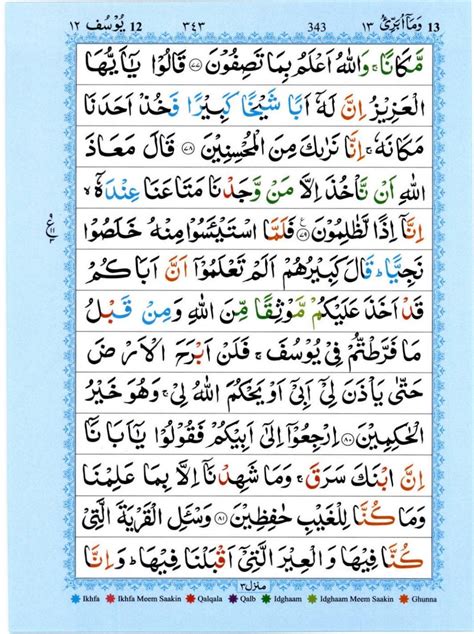 ١٢ يُوْسُف 12 ٣٤٣ 343 وَمَآ اُبَرِّئُ ١٣ 13
مَّكَانًا ۚ وَاللّٰهُ اَعْلَمُ بِمَا تَصِفُوْنَ ﴿۷۷﴾ قَالُوْا يٰۤاَيُّهَا
الْعَزِيْزُ اِنَّ لَهٗۤ اَبًا شَيْخًا كَبِيْرًا فَخُذْ اَحَدَنَا
مَكَانَهٗ ۚ اِنَّا نَرٰىكَ مِنَ الْمُحْسِنِيْنَ ﴿۷۸﴾ قَالَ مَعَاذَ
اللّٰهِ اَنْ تَّاْخُذَ اِلَّا مَنْ وَّجَدْنَا مَتَاعَنَا عِنْدَهٗۤ ۙ
اِنَّاۤ اِذًا لَّظٰلِمُوْنَ ﴿۷۹﴾ فَلَمَّا اسْتَيْـَٔسُوْا مِنْهُ خَلَصُوْا
نَجِيًّا ؕ قَالَ كَبِيْرُهُمْ اَلَمْ تَعْلَمُوْۤا اَنَّ اَبَاكُمْ
قَدْ اَخَذَ عَلَيْكُمْ مَّوْثِقًا مِّنَ اللّٰهِ وَمِنْ قَبْلُ
مَا فَرَّطْتُّمْ فِيْ يُوْسُفَ ۚ فَلَنْ اَبْرَحَ الْاَرْضَ
حَتّٰى يَاْذَنَ لِيْۤ اَبِيْۤ اَوْ يَحْكُمَ اللّٰهُ لِيْ ۚ وَهُوَ خَيْرُ
الْحٰكِمِيْنَ ﴿۸۰﴾ اِرْجِعُوْۤا اِلٰۤى اَبِيْكُمْ فَقُوْلُوْا يٰۤاَبَانَاۤ
اِنَّ ابْنَكَ سَرَقَ ۚ وَمَا شَهِدْنَاۤ اِلَّا بِمَا عَلِمْنَا
وَمَا كُنَّا لِلْغَيْبِ حٰفِظِيْنَ ﴿۸۱﴾ وَسْـَٔلِ الْقَرْيَةَ الَّتِيْ
كُنَّا فِيْهَا وَالْعِيْرَ الَّتِيْۤ اَقْبَلْنَا فِيْهَا ؕ وَاِنَّا
منزل ٣
Ikhfa Ikhfa Meem Saakin Qalqala Qalb Idghaam Idghaam Meem Saakin Ghunna